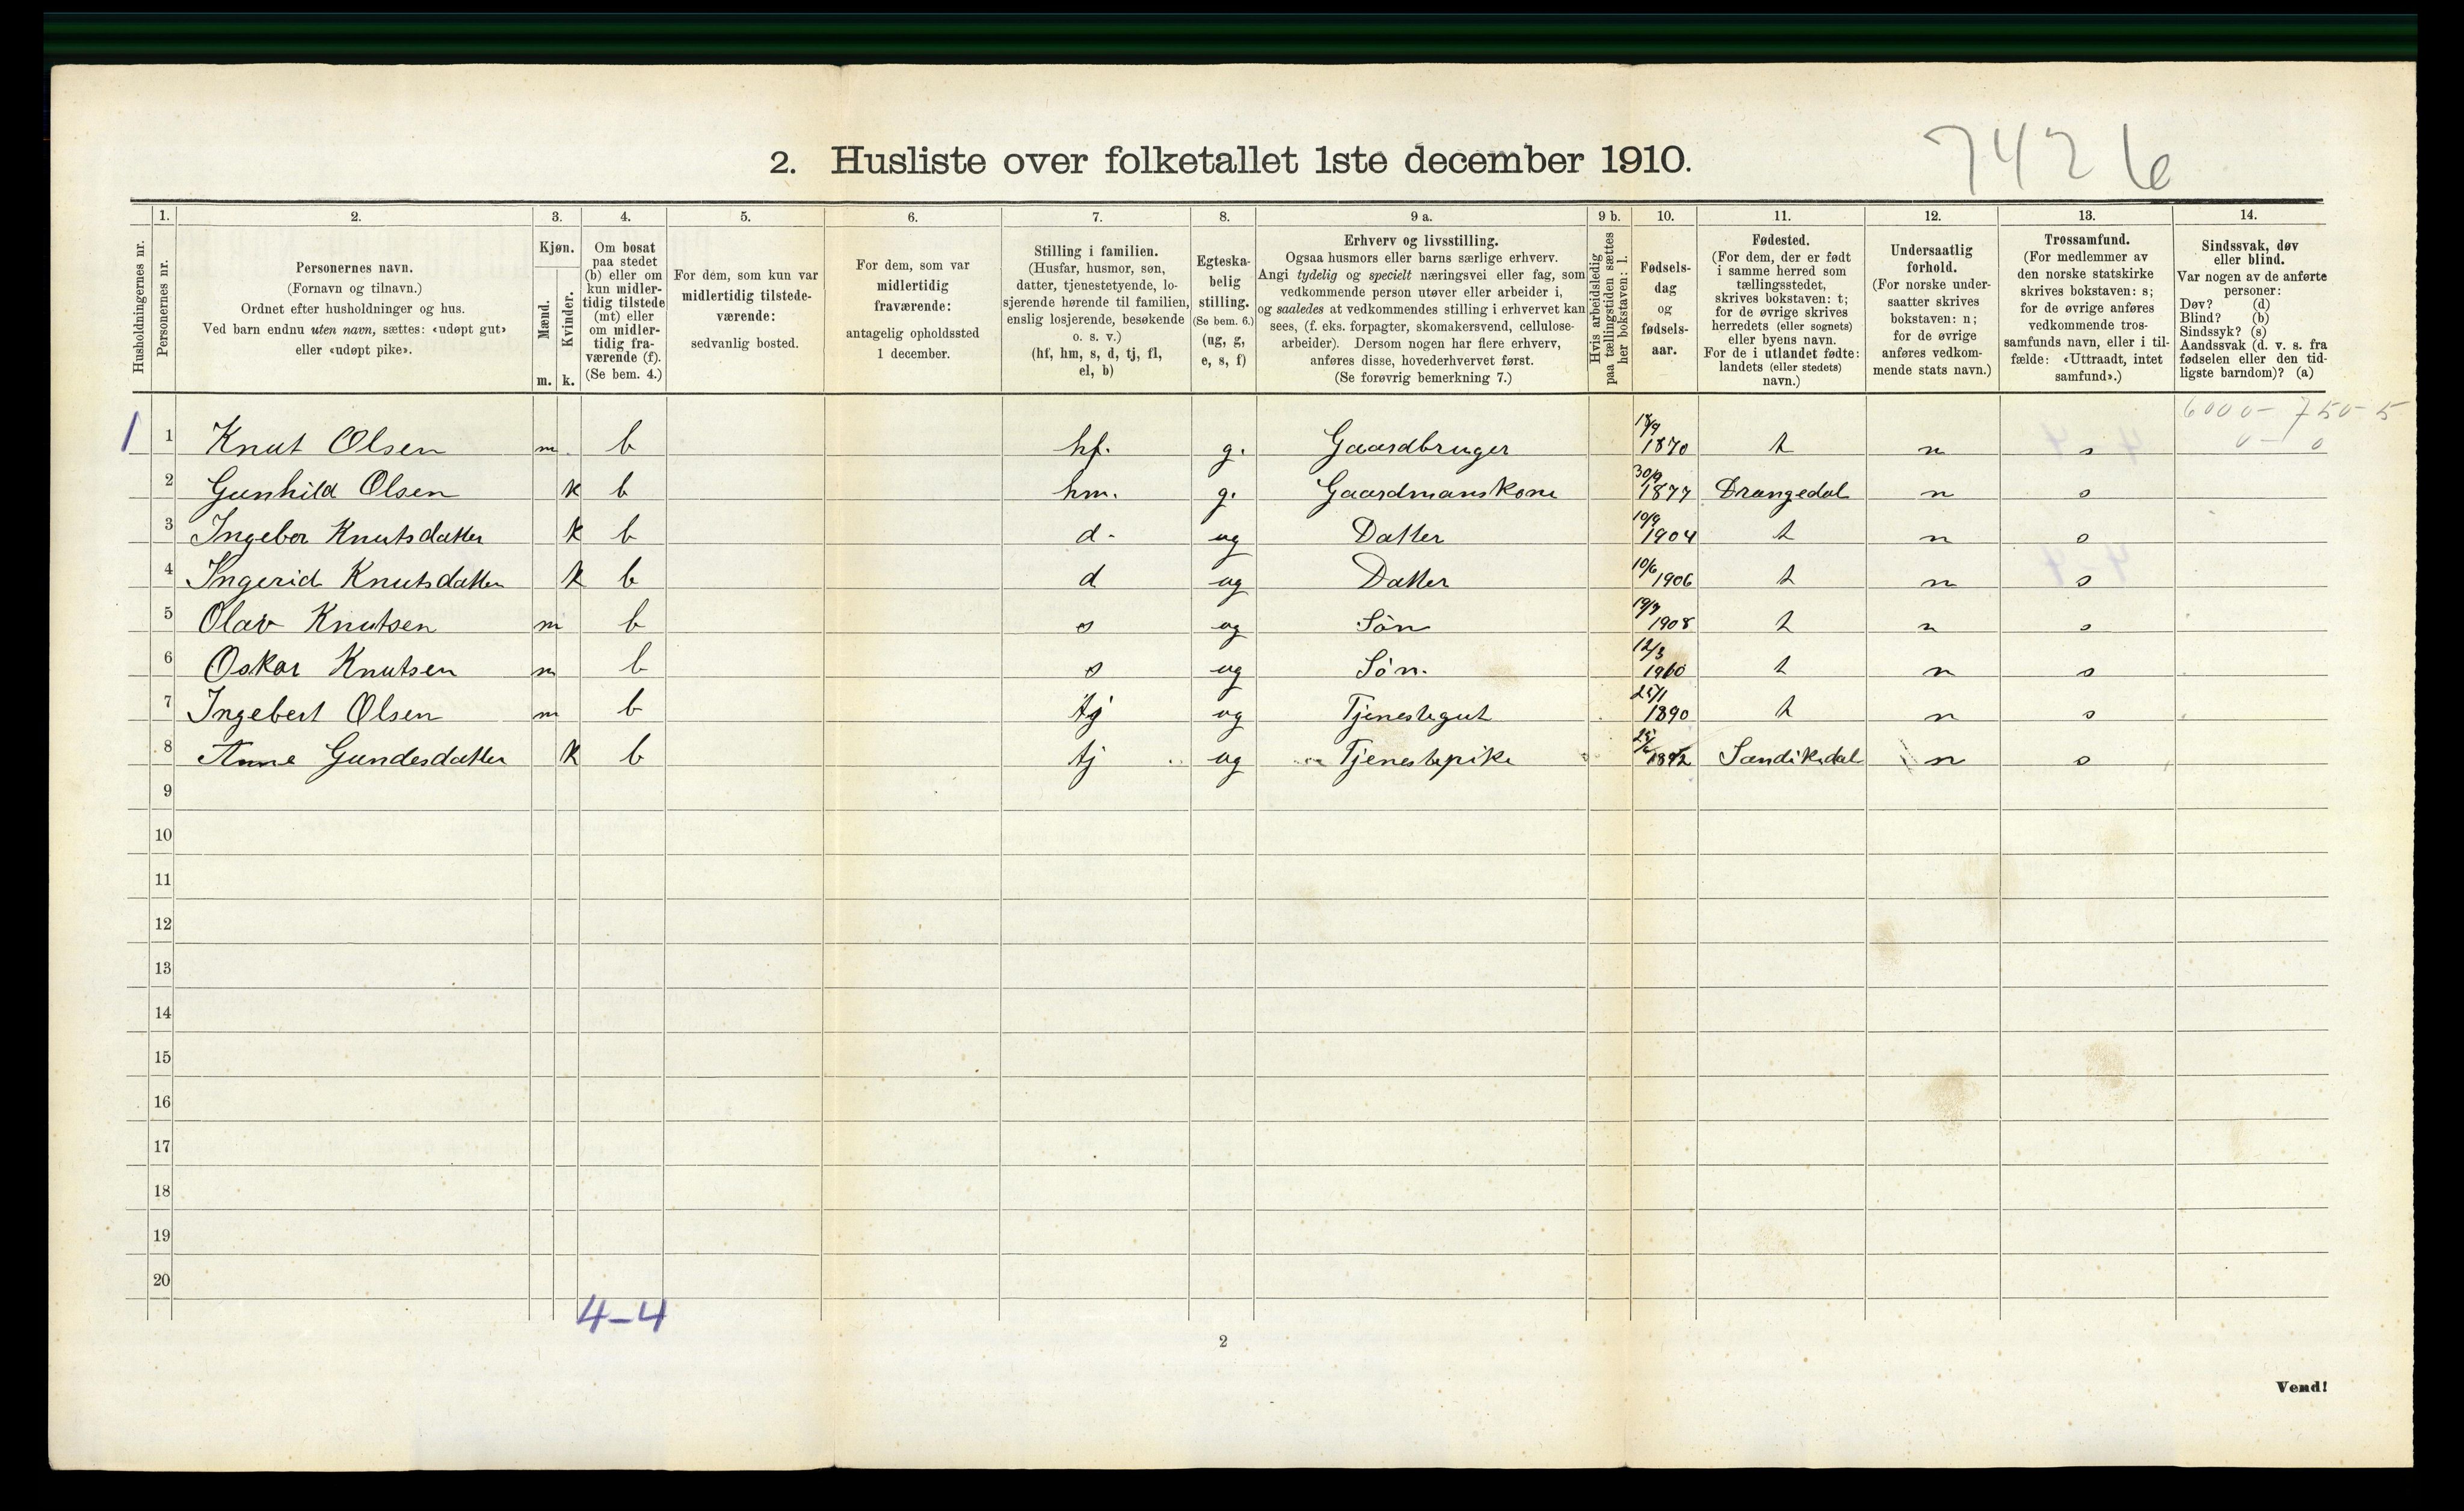 7426
2. Husliste over folketallet 1ste december 1910.
1. 2. 3. 4. 5. 6. 7. 8. 9 a. 9 b. 10. 11. 12. 13. 14.
Husholdningernes nr.
Personernes nr.
Personernes navn.
(Fornavn og tilnavn.)
Ordnet efter husholdninger og hus.
Ved barn endnu uten navn, sættes: «udøpt gut»
eller «udøpt pike».
Kjøn.
Mænd.
Kvinder.
m. k.
Om bosat
paa stedet
(b) eller om
kun midler-
tidig tilstede
(mt) eller
om midler-
tidig fra-
værende (f).
(Se bem. 4.)
For dem, som kun var
midlertidig tilstede-
værende:
sedvanlig bosted.
For dem, som var
midlertidig
fraværende:
antagelig opholdssted
1 december.
Stilling i familien.
(Husfar, husmor, søn,
datter, tjenestetyende, lo-
sjerende hørende til familien,
enslig losjerende, besøkende
o. s. v.)
(hf, hm, s, d, tj, fl,
el, b)
Egteska-
belig
stilling.
(Se bem. 6.)
(ug, g,
e, s, f)
Erhverv og livsstilling.
Ogsaa husmors eller barns særlige erhverv.
Angi tydelig og specielt næringsvei eller fag, som
vedkommende person utøver eller arbeider i,
og saaledes at vedkommendes stilling i erhvervet kan
sees, (f. eks. forpagter, skomakersvend, cellulose-
arbeider). Dersom nogen har flere erhverv,
anføres disse, hovederhvervet først.
(Se forøvrig bemerkning 7.)
Hvis arbeidsledig
paa tællingstiden sættes
her bokstaven: l.
Fødsels-
dag
og
fødsels-
aar.
Fødested.
(For dem, der er født
i samme herred som
tællingsstedet,
skrives bokstaven: t;
for de øvrige skrives
herredets (eller sognets)
eller byens navn.
For de i utlandet fødte:
landets (eller stedets)
navn.)
Undersaatlig
forhold.
(For norske under-
saatter skrives
bokstaven: n;
for de øvrige
anføres vedkom-
mende stats navn.)
Trossamfund.
(For medlemmer av
den norske statskirke
skrives bokstaven: s;
for de øvrige anføres
vedkommende tros-
samfunds navn, eller i til-
fælde: «Uttraadt, intet
samfund».)
Sindssvak, døv
eller blind.
Var nogen av de anførte
personer:
Døv? (d)
Blind? (b)
Sindssyk? (s)
Aandssvak (d. v. s. fra
fødselen eller den tid-
ligste barndom)? (a)
6000 - 750 - 5
0 - 0
1 1 Knut Olsen m. b hf. g. Gaardbruger 18/9 1870 t n s
2 Gunhild Olsen k b hm. g. Gaardmanskone 30/9 1877 Drangedal n s
3 Ingebor Knutsdatter k b d. ug Datter 10/9 1904 t n s
4 Ingerid Knutsdatter k b d ug Datter 10/6 1906 t n s
5 Olav Knutsen m b s ug Søn 1908 t n s
6 Oskar Knutsen m b s ug Søn. 12/3 1910 t n s
7 Ingebert Olsen m b tj ug Tjenestegut 25/1 1890 t n s
8 Anne Gundesdatter k b tj ug Tjenestepike 1892 Sandikedal n s
9
10
11
12
13
14
15
16
17
18
19
20
4-4
2
Vend!